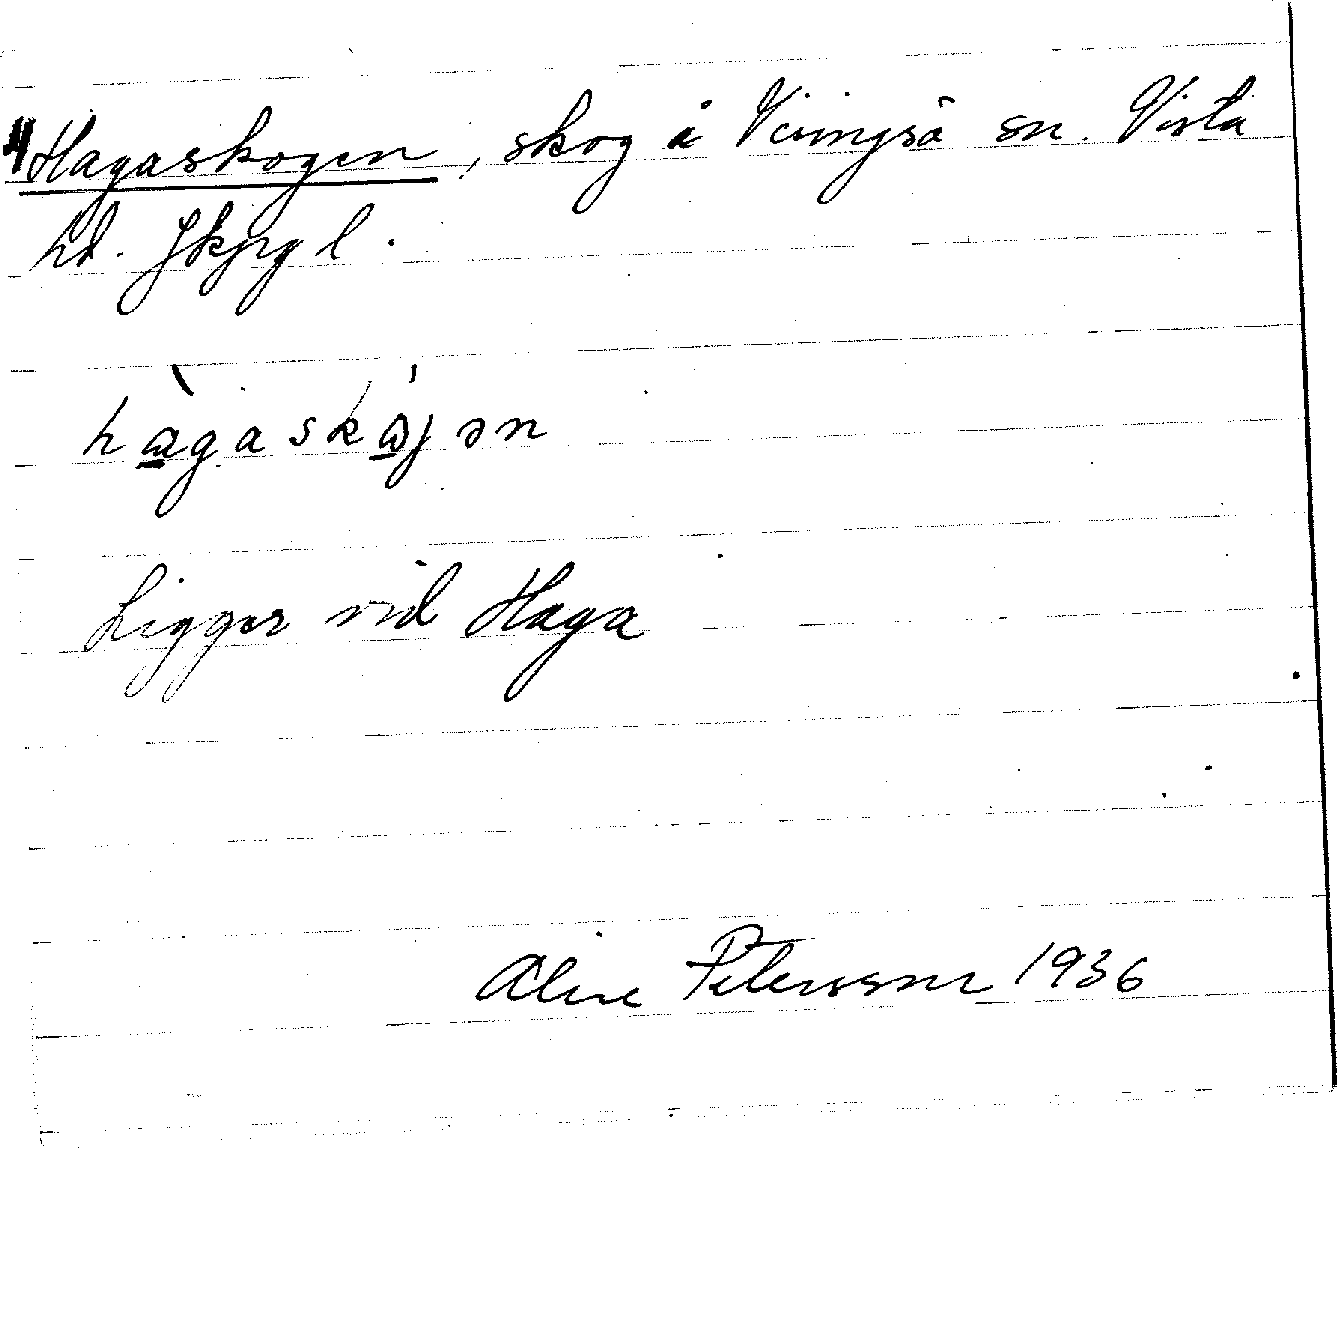 Hagaskogen, skog i Visingsö sn. Vista
hd. Jkpg l.
Ligger vid Haga
Petersson 1936